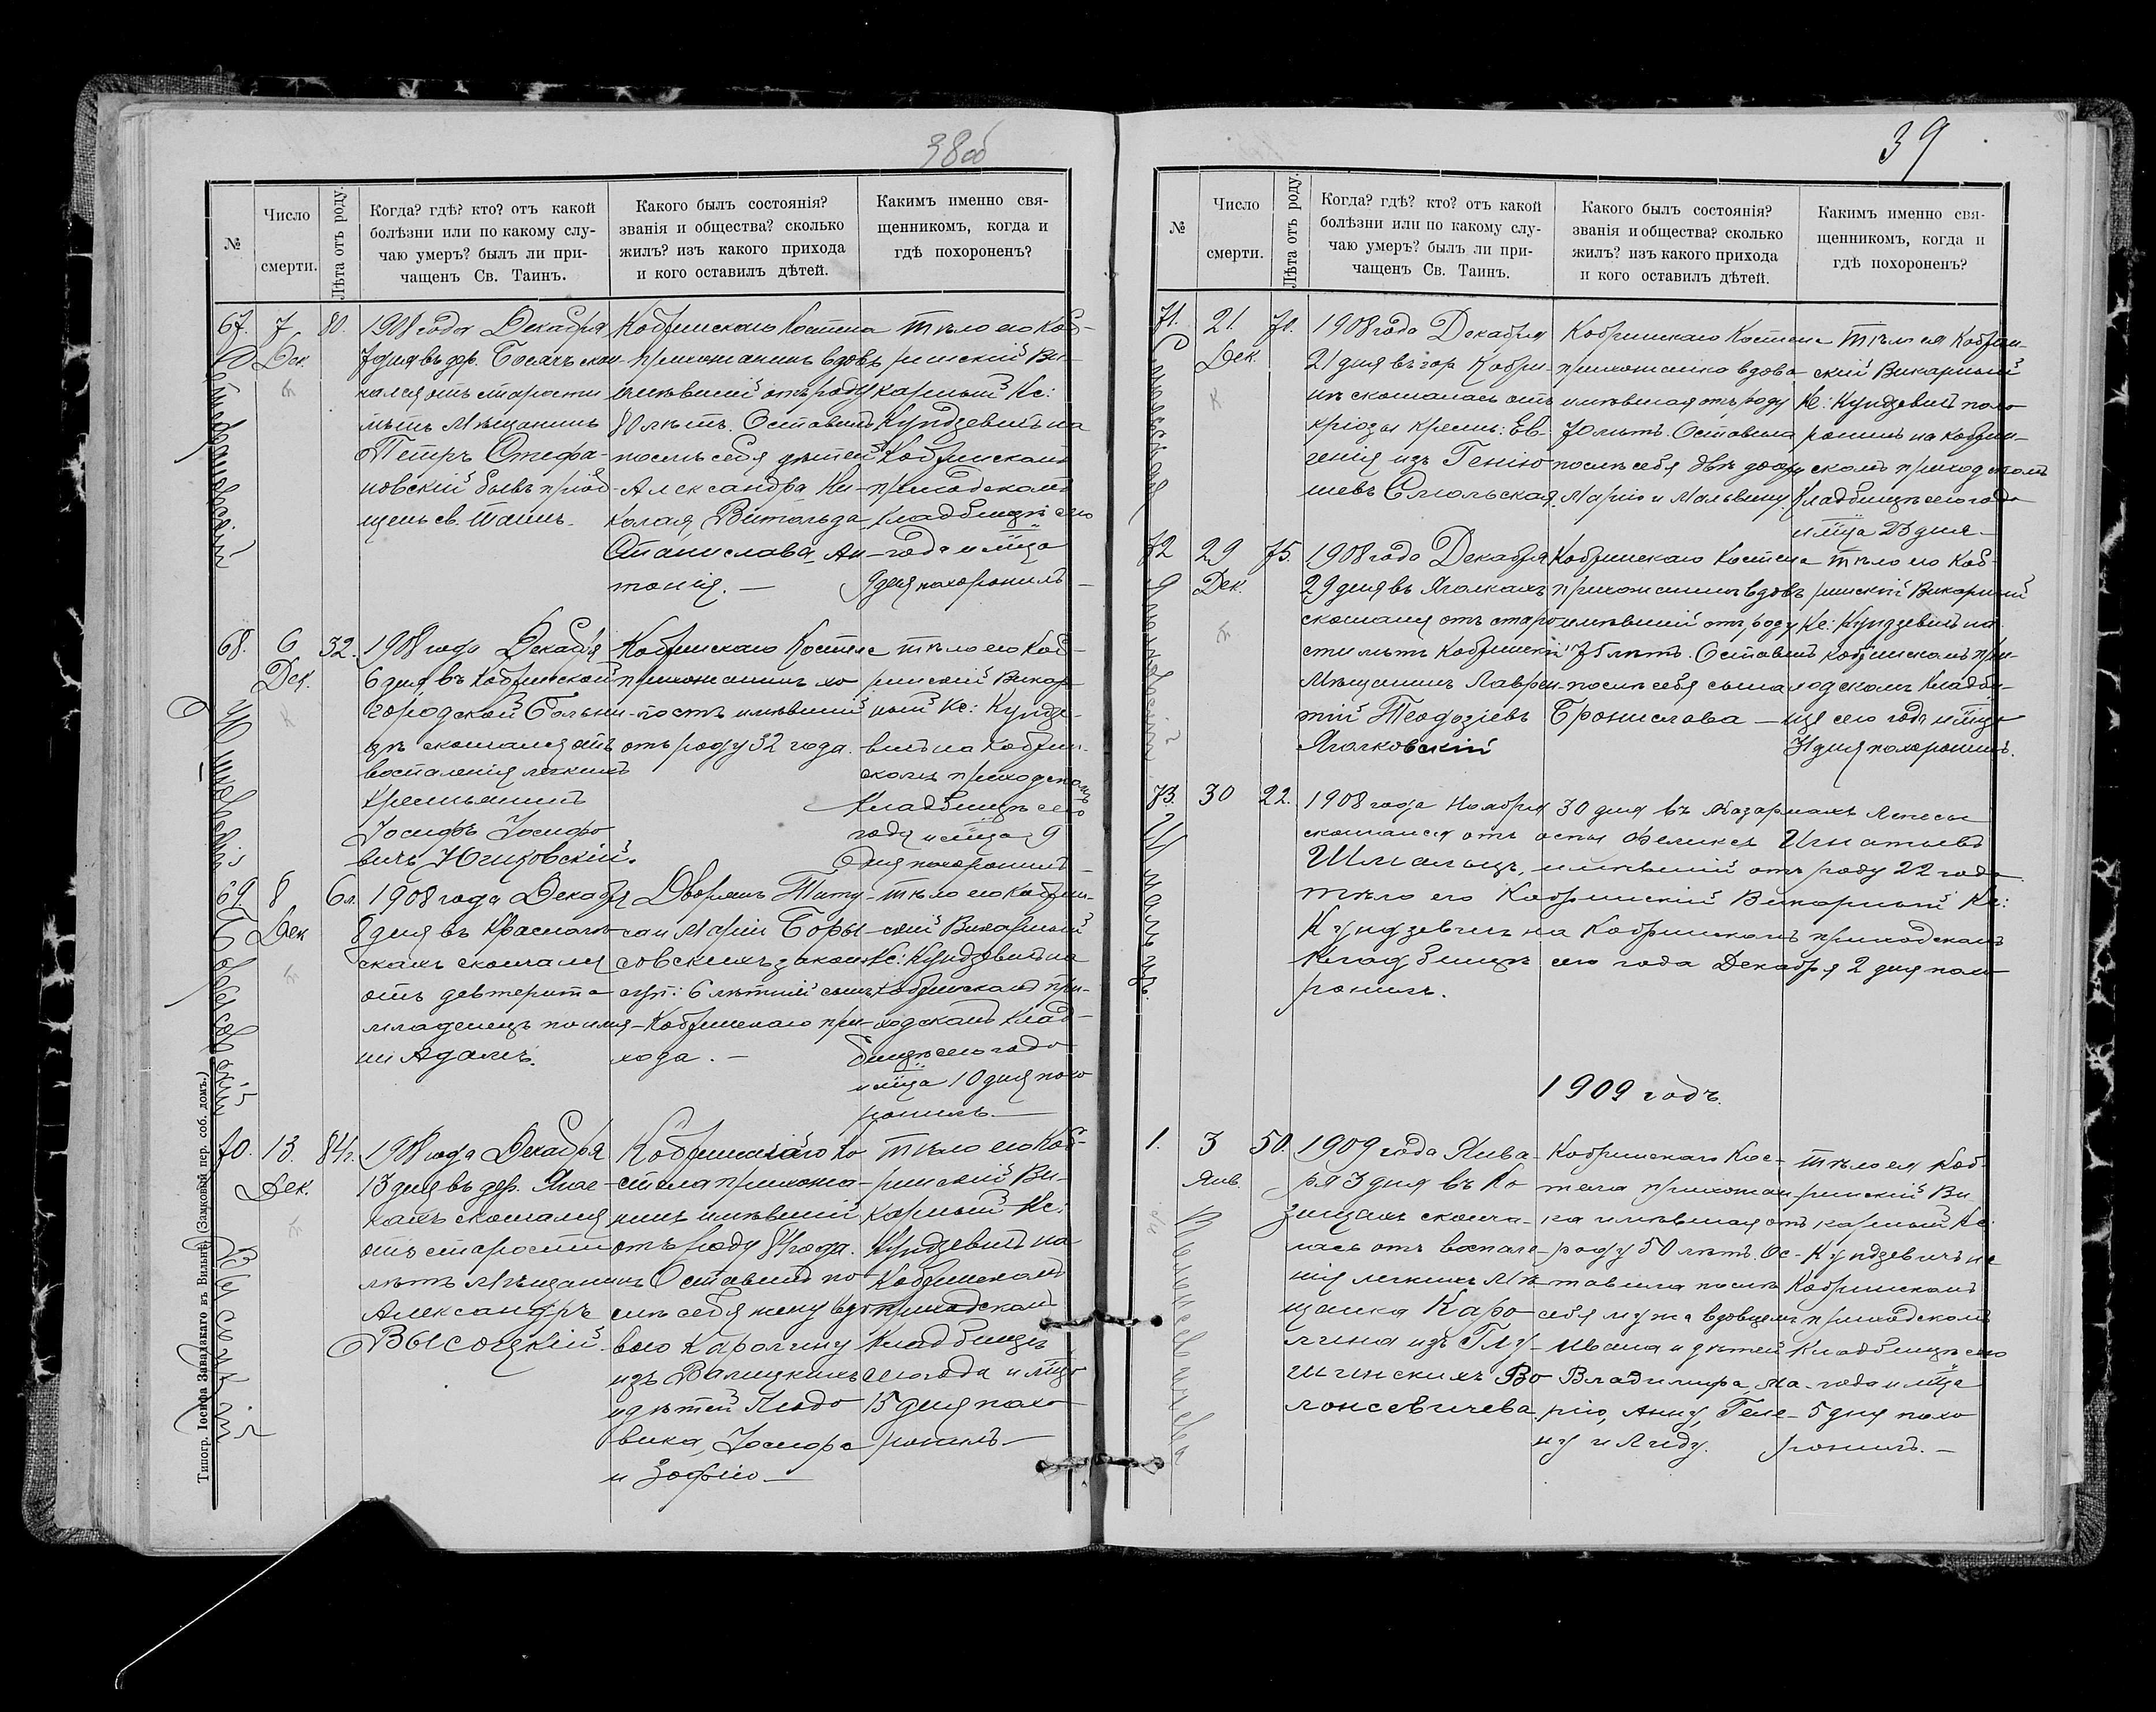 38об
№
Число
смерти.
Лѣта отъ роду.
Когда? гдѣ? кто? отъ какой
болѣзни или по какому слу-
чаю умеръ? былъ ли при-
чащенъ Св. Таинъ.
Какого былъ состоянія?
званія и общества? сколько
жилъ? изъ какого прихода
и кого оставилъ дѣтей.
Какимъ именно свя-
щенникомъ, когда и
гдѣ похороненъ?
67.
Стефановскій
7
Дек.
80.
1908 года Декабря
7 дня въ др. скон-
чался отъ старости
лѣтъ Мѣщанинъ
Петръ Стефа-
новскій бывъ пріоб-
щенъ св. таинъ.
Кобринскаго Костела
прихожанинъ вдовъ
имѣвшій отъ роду
80 лѣтъ. Оставилъ
послѣ себя дѣтей
Александра Ни-
колая, Витольда
Станислава, Ан-
тонія. —
тѣло его Коб-
ринскій Ви-
карный Кс:
Кундзевичъ на
Кобринскомъ
приходскомъ
Кладбищѣ сего
года и мѣсяца
9 дня похоронилъ —
68.
6
Дек.
32.
1908 года Декабря
6 дня въ Кобринской
городской Больни-
цѣ скончался отъ
воспаленія легкихъ
Крестьянинъ
Іосифъ Іосифо
вичъ
Кобринскаго Костела
прихожанинъ хо
лостъ имѣвшій
отъ роду 32 года.
тѣло его Коб-
ринскій Викар
ный Кс: Кундзе-
вичъ на Кобрин-
скомъ приходскомъ
Кладбищѣ сего
года и мѣсяца 9
дня похоронилъ —
69.
Борысовскій
8
Дек
6 л.
1908 года Декабря
8 дня въ
скахъ скончался
отъ дифтерита
младенецъ по име-
ни Адамъ.
Дворянъ
и Маріи Боры-
совскихъ закон.
6 лѣтній сынъ
Кобринскаго при-
хода. —
тѣло его Кобрин-
скій Викарный
Кс: Кундзевичъ на
Кобринскомъ при-
ходскомъ Клад-
бищѣ сего года
и мѣсяца 10 дня похо
ронилъ. —
70.
Высоцкій
13.
Дек.
84 г.
1908 года Декабря
13 дня въ дер.
кахъ скончался
отъ старости
лѣтъ Мѣщанинъ
Александръ
Высоцкій.
Кобринскаго Ко
стела прихожа-
нинъ имѣвшій
отъ роду 84 года.
Оставилъ по
слѣ себя жену вдо
вою Каролину
изъ Валицкихъ
и дѣтей Людо
вика, Іосифа
и Зофію —
тѣло его Коб-
ринскій Ви-
карный Кс:
Кундзевичъ на
Кобринскомъ
приходскомъ
Кладбищѣ
сего года и мѣсяца
15 дня похо
ронилъ —
Типогр. Іосифа Завадзкаго въ Вильнѣ, (Замковый пер. соб. домъ.)
39
№
Число
смерти.
Лѣта отъ роду.
Когда? гдѣ? кто? отъ какой
болѣзни или по какому слу-
чаю умеръ? былъ ли при-
чащенъ Св. Таинъ.
Какого былъ состоянія?
званія и общества? сколько
жилъ? изъ какого прихода
и кого оставилъ дѣтей.
Какимъ именно свя-
щенникомъ, когда и
гдѣ похороненъ?
71.
Смольская
21.
Дек.
70.
1908 года Декабря
21 дня въ гор. Кобри-
нѣ скончалась отъ
Крест: Ев-
генія изъ Генію-
шевъ Смольская.
Кобринскаго Костела
прихожанка вдова
имѣвшая отъ роду
70 лѣтъ. Оставила
послѣ себя двѣ дочери
Марію и Мальвину.
тѣло ея Кобрин-
скій Викарный
Кс: Кундзевичъ похо
ронилъ на Кобрин-
скомъ приходскомъ
Кладбищѣ сего года
и мѣсяца 23 дня —
72
29
Дек.
75.
1908 года Декабря
29 дня въ Яголкахъ
скончался отъ старо
сти лѣтъ Кобринскій
Мѣщанинъ Лаврен-
тій Теодозіевъ
Яголковскій
Кобринскаго Костела
прихожанинъ вдовъ
имѣвшій отъ роду
75 лѣтъ. Оставилъ
послѣ себя сына
Бронислава —
тѣло его Коб-
ринскій Викарный
Кс: Кундзевичъ на
Кобринскомъ при-
ходскомъ Кладби-
щѣ сего года и мѣсяца
31 дня похоронилъ.
73.
Шмальцъ.
30
22.
1908 года Ноября 30 дня въ Казармахъ
скончался отъ оспы Феликсъ Игнатьевъ
Шмальцъ, имѣвшій отъ роду 22 года
тѣло его Кобринскій Викарный Кс:
Кундзевичъ на Кобринскомъ приходскомъ
Кладбищѣ сего года Декабря 2 дня похо
ронилъ.
1909 годъ.
1.
Волонсевичева
3
Янв.
50.
1909 года Янва-
ря 3 дня въ Ко
зищахъ сконча-
лась отъ воспале-
нія легкихъ Мѣ
щанка Каро
лина изъ Глу-
шинскихъ Во
лонсевичева.
Кобринскаго Кос-
тела прихожан
ка имѣвшая отъ
роду 50 лѣтъ. Ос-
тавила послѣ
себя мужа вдовцемъ
Ивана и дѣтей
Владимира, Ма-
рію, Анну, Геле-
ну и Лиду.
тѣло ея Коб-
ринскій Ви
карный Кс:
Кундзевичъ на
Кобринскомъ
приходскомъ
Кладбищѣ сего
года и мѣсяца
5 дня похо
ронилъ. —